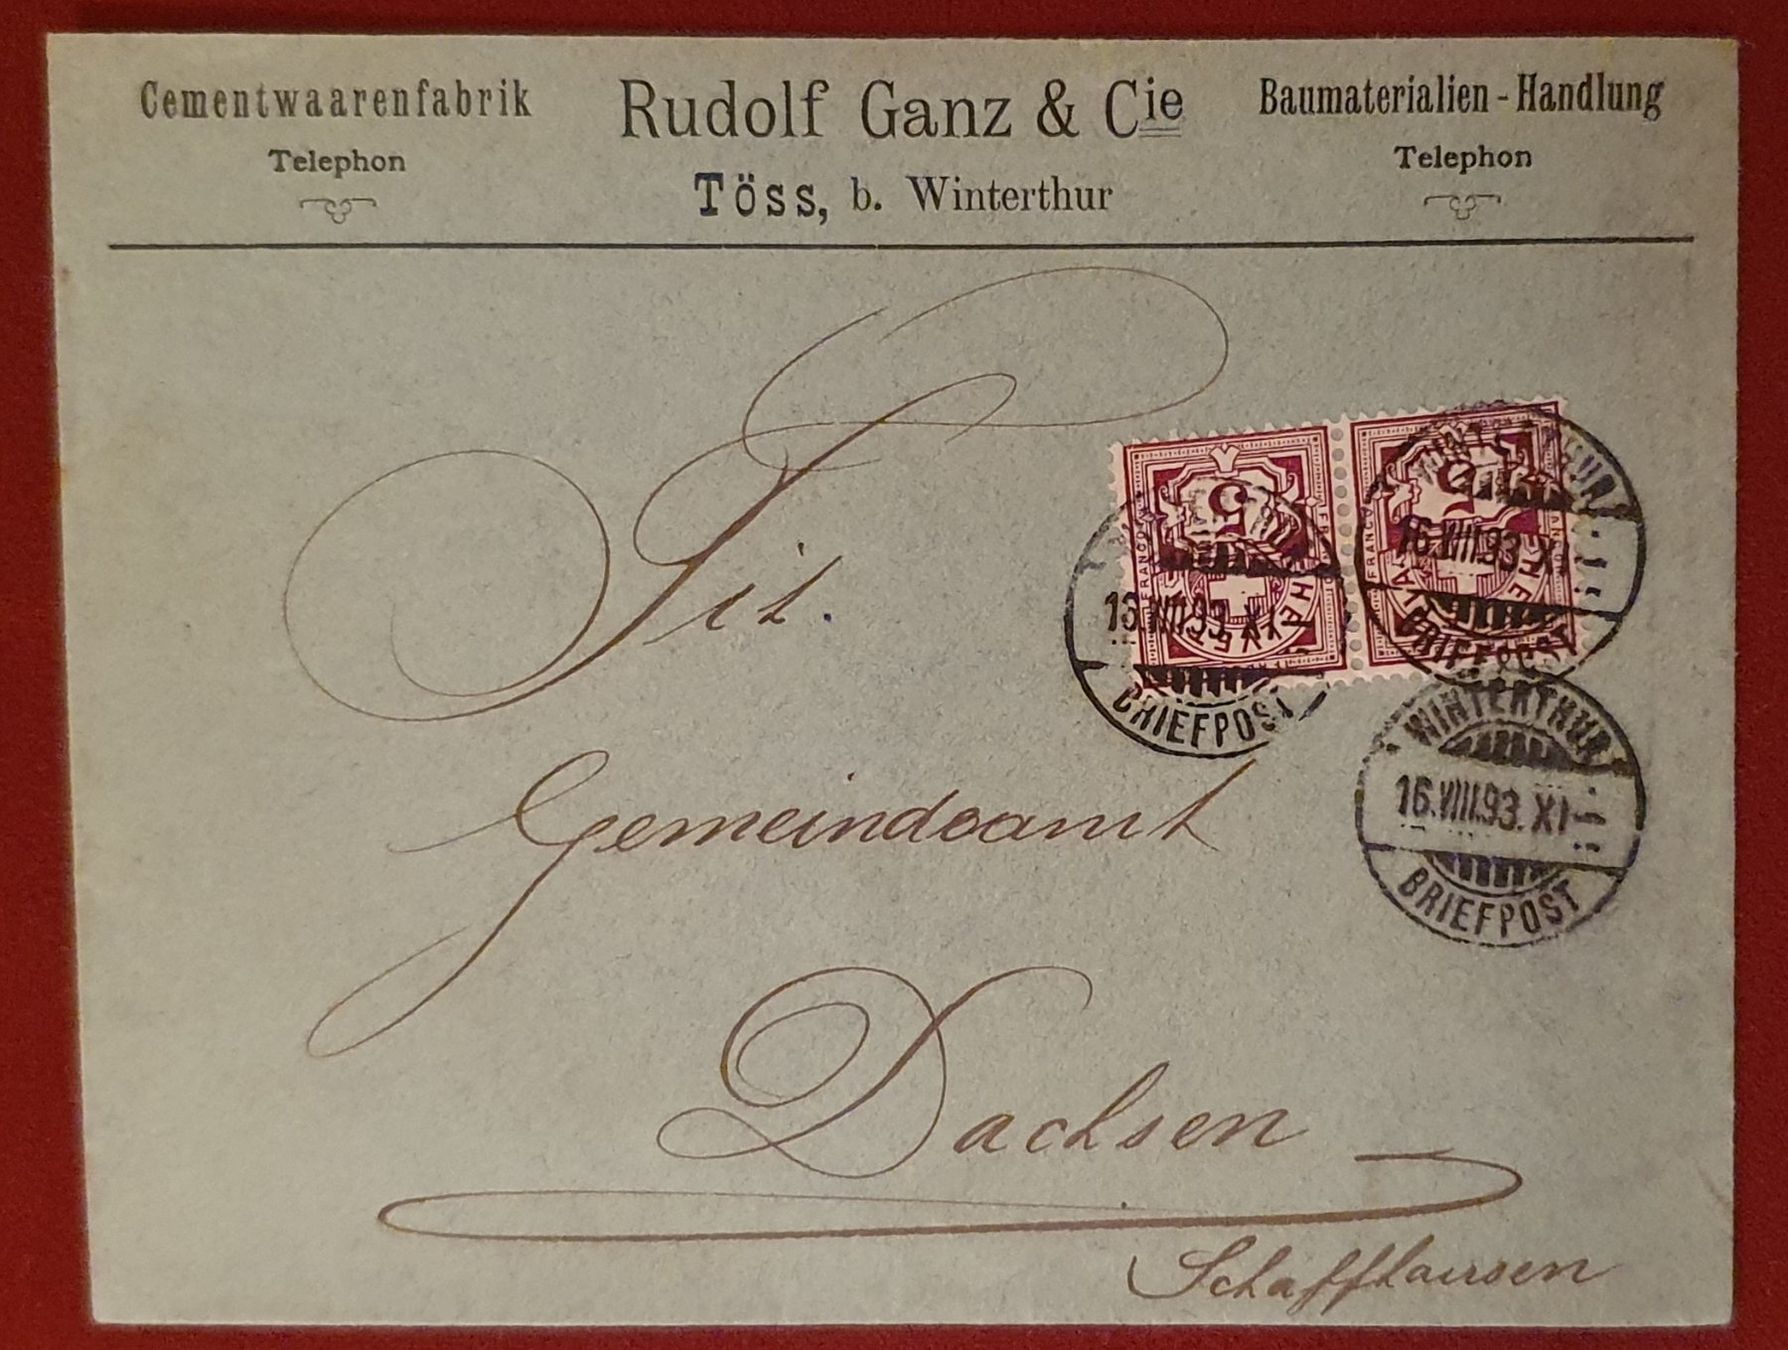 Cementwaarenfabrik
Telephon
Rudolf Ganz & Cie
Töss, b. Winterthur
Baumaterialien-Handlung
Telephon
Tit.
Gemeindeamt
Dachsen
Schaffhausen
5
FRANCO
HELVETIA
5
FRANCO
HELVETIA
16.VIII.93.XI
BRIEFPOST
WINTERTHUR
16.VIII.93.XI
BRIEFPOST
WINTERTHUR
16.VIII.93.XI-
BRIEFPOST